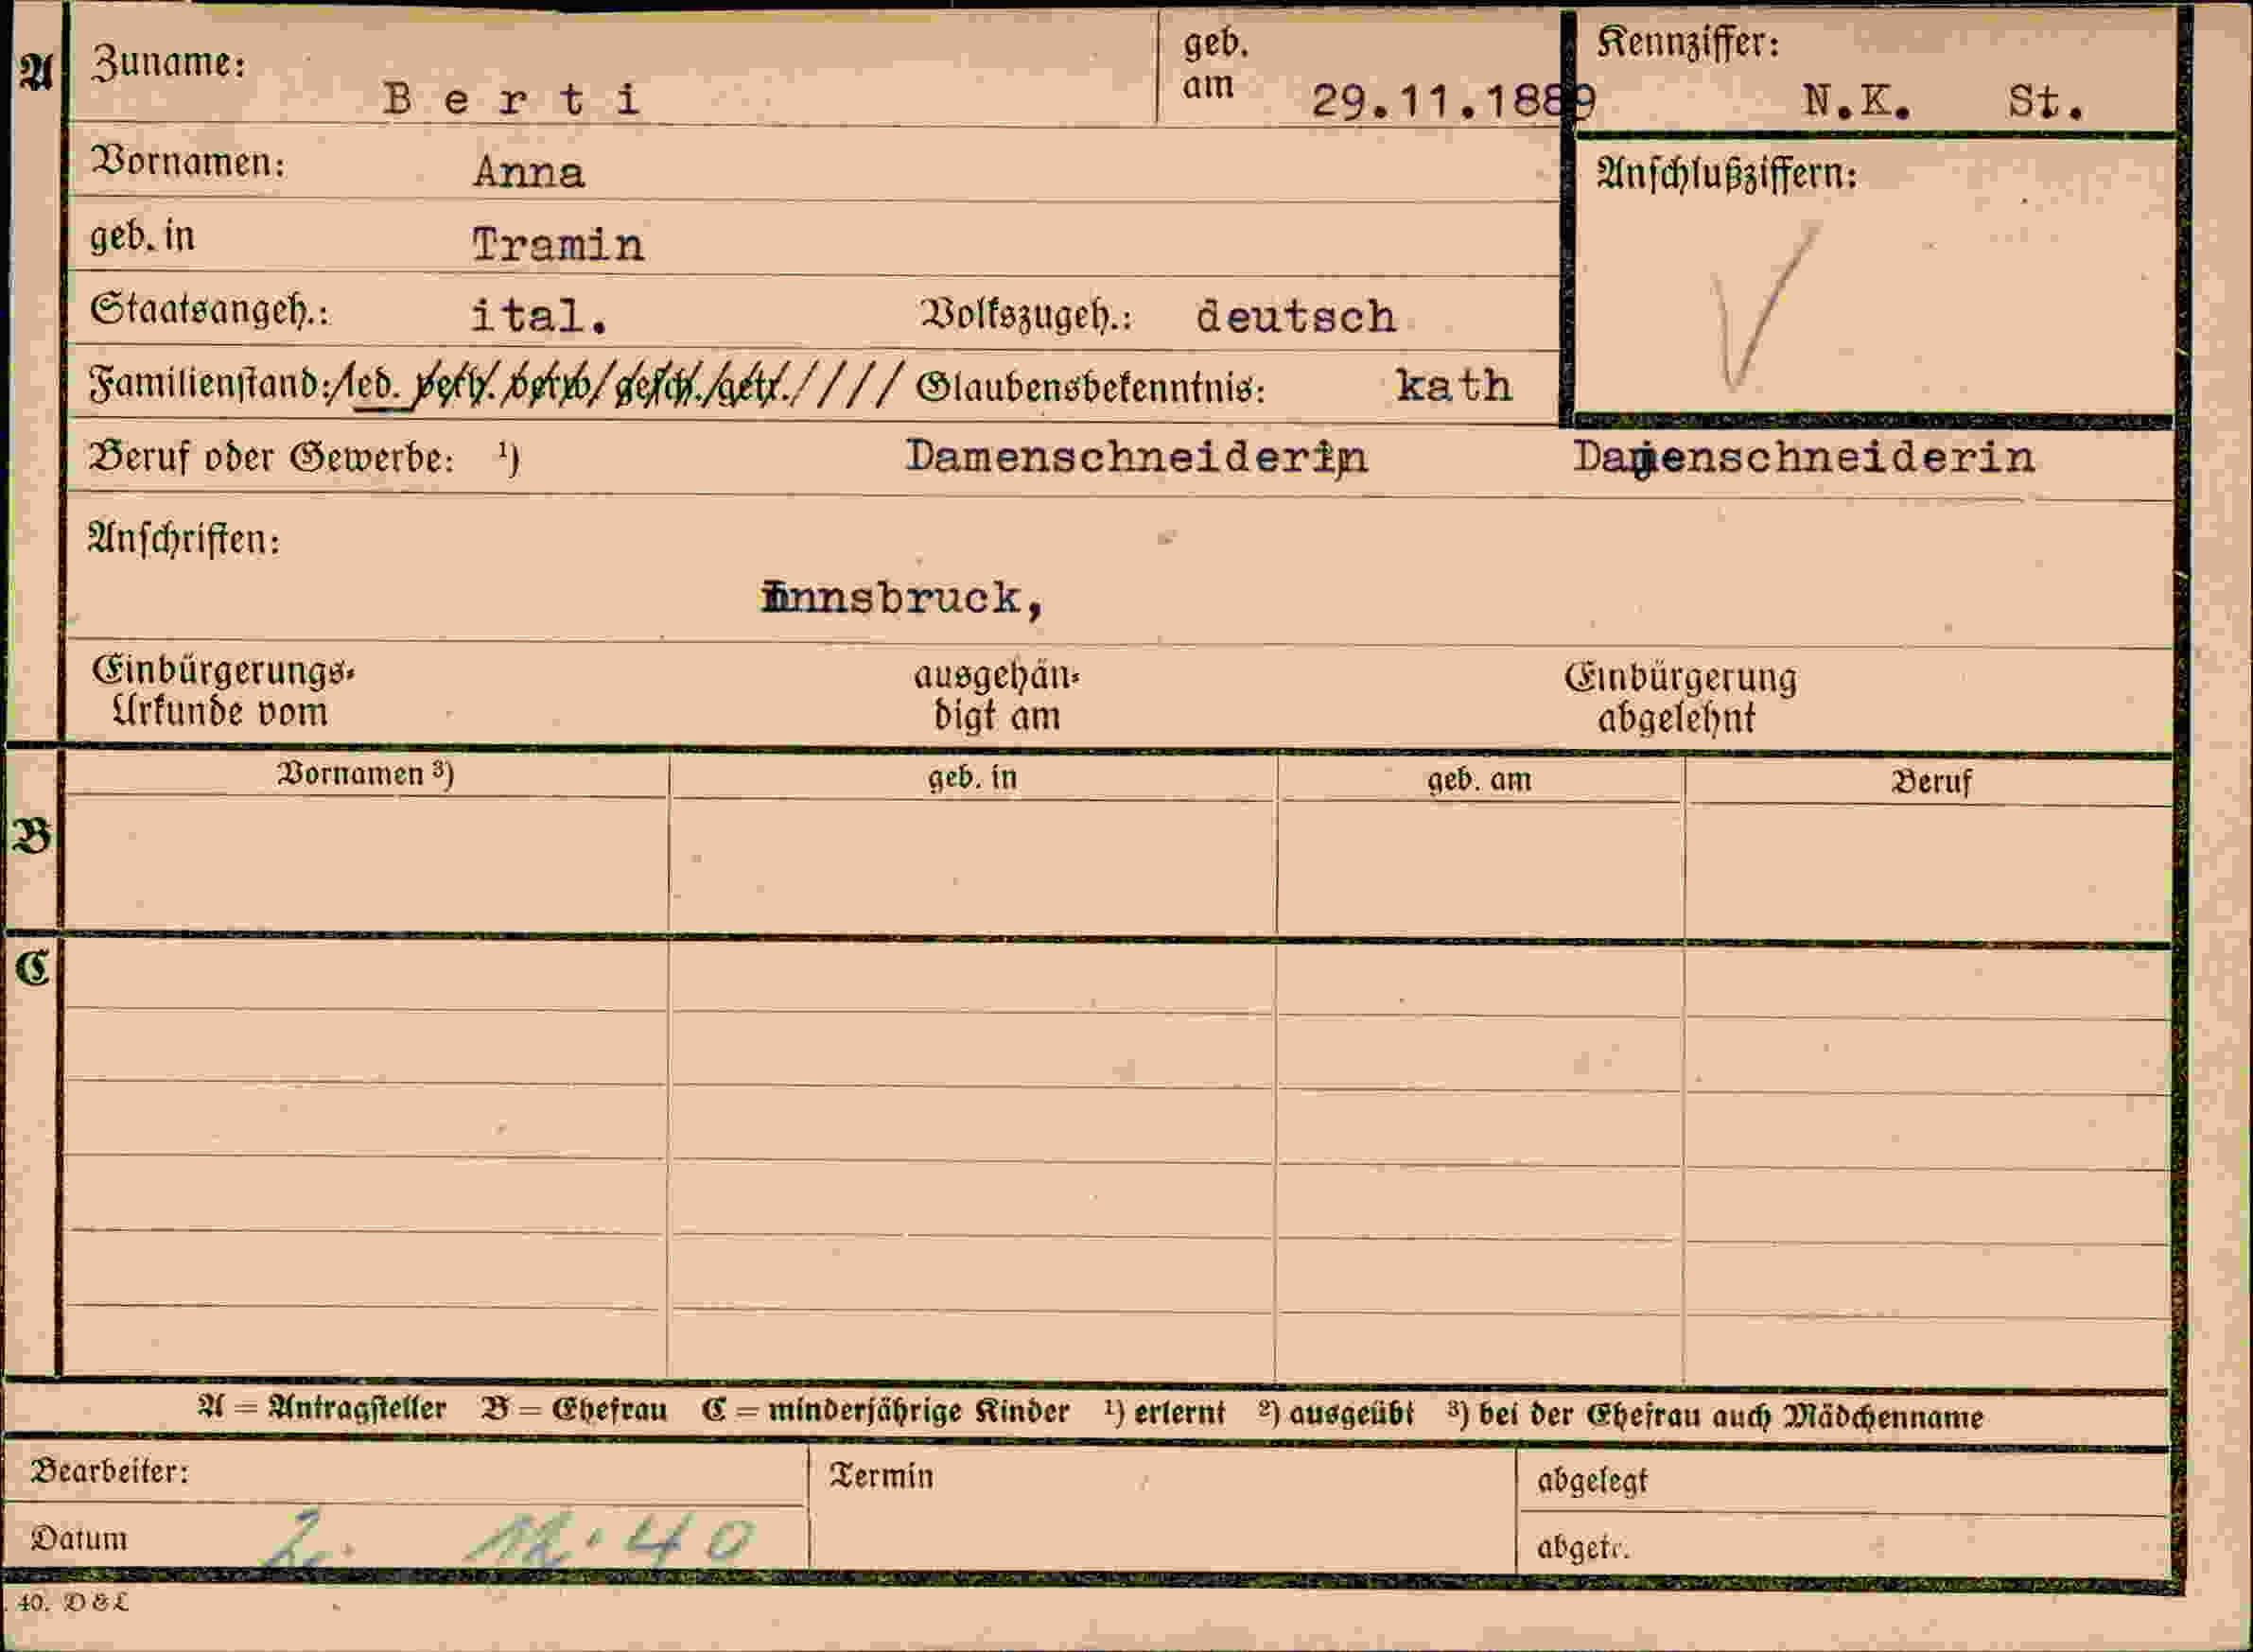 A Zuname: B e r t i geb. am 29.11.1889 Kennziffer: N.K. St.
Vornamen: Anna Anschlußziffern:
geb. in Tramin
Staatsangeh.: ital. Volkszugeh.: deutsch
Familienstand: led. verh. verw. gesch. getr. Glaubensbekenntnis: kath
Beruf oder Gewerbe: ¹) Damenschneiderin Damenschneiderin
Anschriften:
Innsbruck,
Einbürgerungs- ausgehän- Einbürgerung
Urkunde vom digt am abgelehnt
B Vornamen ³) geb. in geb. am Beruf
C
A = Antragsteller B = Ehefrau C = minderjährige Kinder ¹) erlernt ²) ausgeübt ³) bei der Ehefrau auch Mädchenname
Bearbeiter: Termin abgelegt
Datum 2. 12. 40 abgetr.
40. D & L